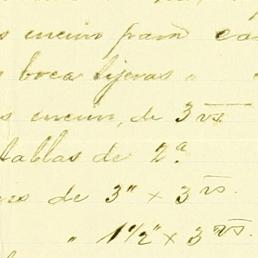 s encino para ca
boca tijeras "
s encino, de 3 vs
tablas de 2ª
es de 3" x 3 vs.
" 1½" x 3 vs.